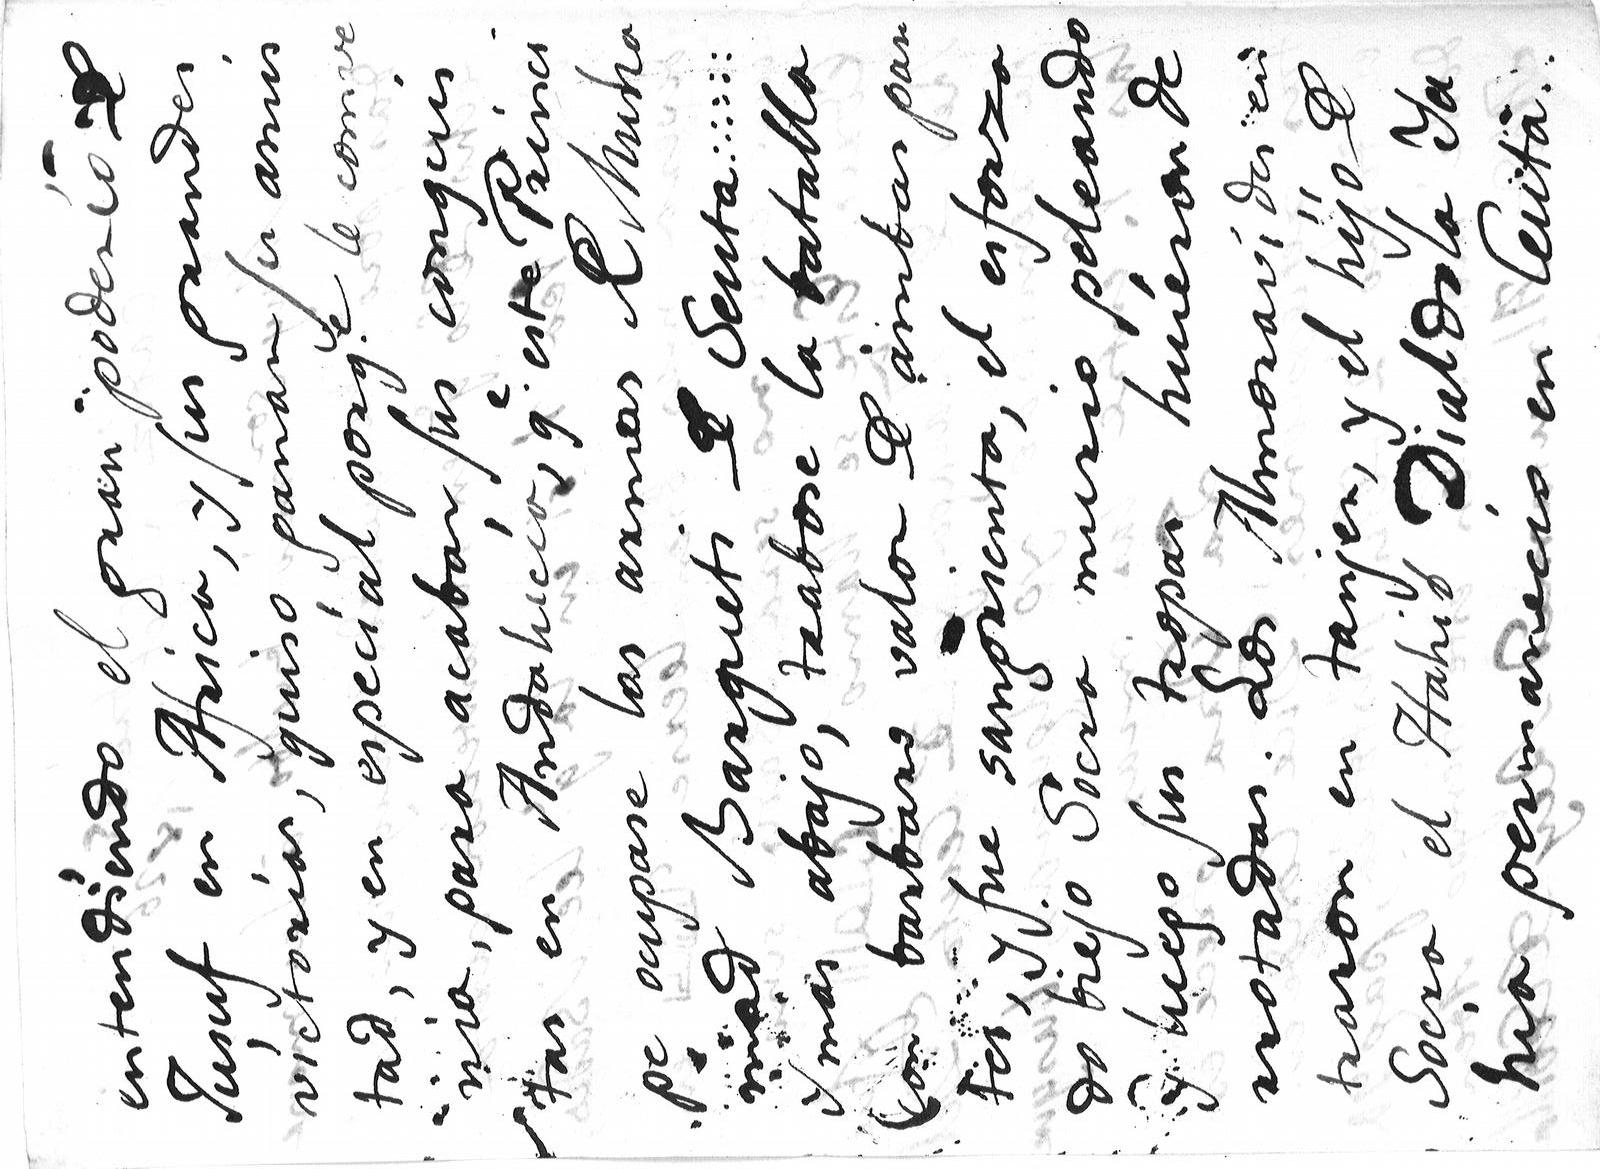 entendiendo el gran poderío de
Jusuf en Africa, y sus grandes
victorias, quiso ganar su amis
tad, y en especial porq.e le conve
nia, para acabar sus conquis
tas en Andalucia, q.e este Prínci
pe ocupase las armas de Muha
mad Barqueti de Seuta......
y mas abajo, trabose la batalla
con barbaro valor de ambas par
tes, y fue sangrienta, el esforza
do biejo Socra murio peleando
y luego sus tropas huieron de
rrotadas. Los Almoravides en
traron en tanjer, y el hijo de
Socra el Hahib Dialdola Ya
hia permanecio en Ceuta.